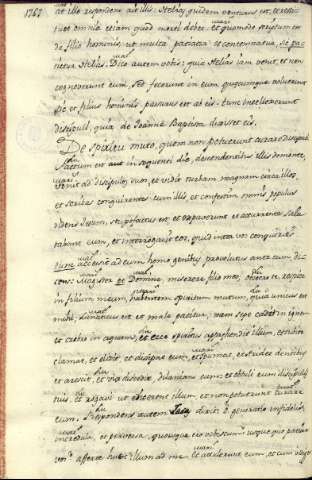 1767
at ille respondens ait illis. Helias quidem venturus est, et resti-
tuet omnia etiam quod mori debet et quomodo scriptum est
de filio hominis, ut multa patiatur et contemnatur, sic pa-
Helias. Dico autem vobis; quia Helias iam venit, et non
cognoverunt eum, sed fecerunt in eum quaecumque voluerunt
sic et filius hominis passurus est ab eis. tunc intellexerunt
discipuli, quia de Ioanne Baptista dixisset eis.
De spiritu muto, quem non potuerunt curare discipuli
factum est aut in sequenti die, descendentibus illis de monte,
venit ad discipulos suos, et vidit turbam magnam circa illos,
et scribas conquirentes cum illis et confestim omnis populus
videns Iesum, stupefactus est et expaverunt et accurrentes salu
tabant eum, et interrogavit eos, quid inter vos conquiritis
accessit ad eum homo genibus provolutus ante eum di-
cens Magister et Domine, miserere filio meo, obsecro te respice
in filium meum habentem spiritum mutum, quia unicus est
mihi, lunaticus est et male patitur, nam sepe cadit in ignem
et crebro in aquam, et ecce spiritus apprehendit illum, et subito
clamat, et elidit et dissipat eum, et spumat, et stridet dentibus
et arescit, et vix discedit, dilanians eum: et obtuli eum discipulis
tuis, et rogavi ut eiicerent illum, et non potuerunt curare
eum. Respondens autem Iesus dixit: o generatio infidelis
incredula, et perversa, quousque ero vobiscum usque quo patiar
vos? afferte huc illum ad me et attulerunt eum, et cum